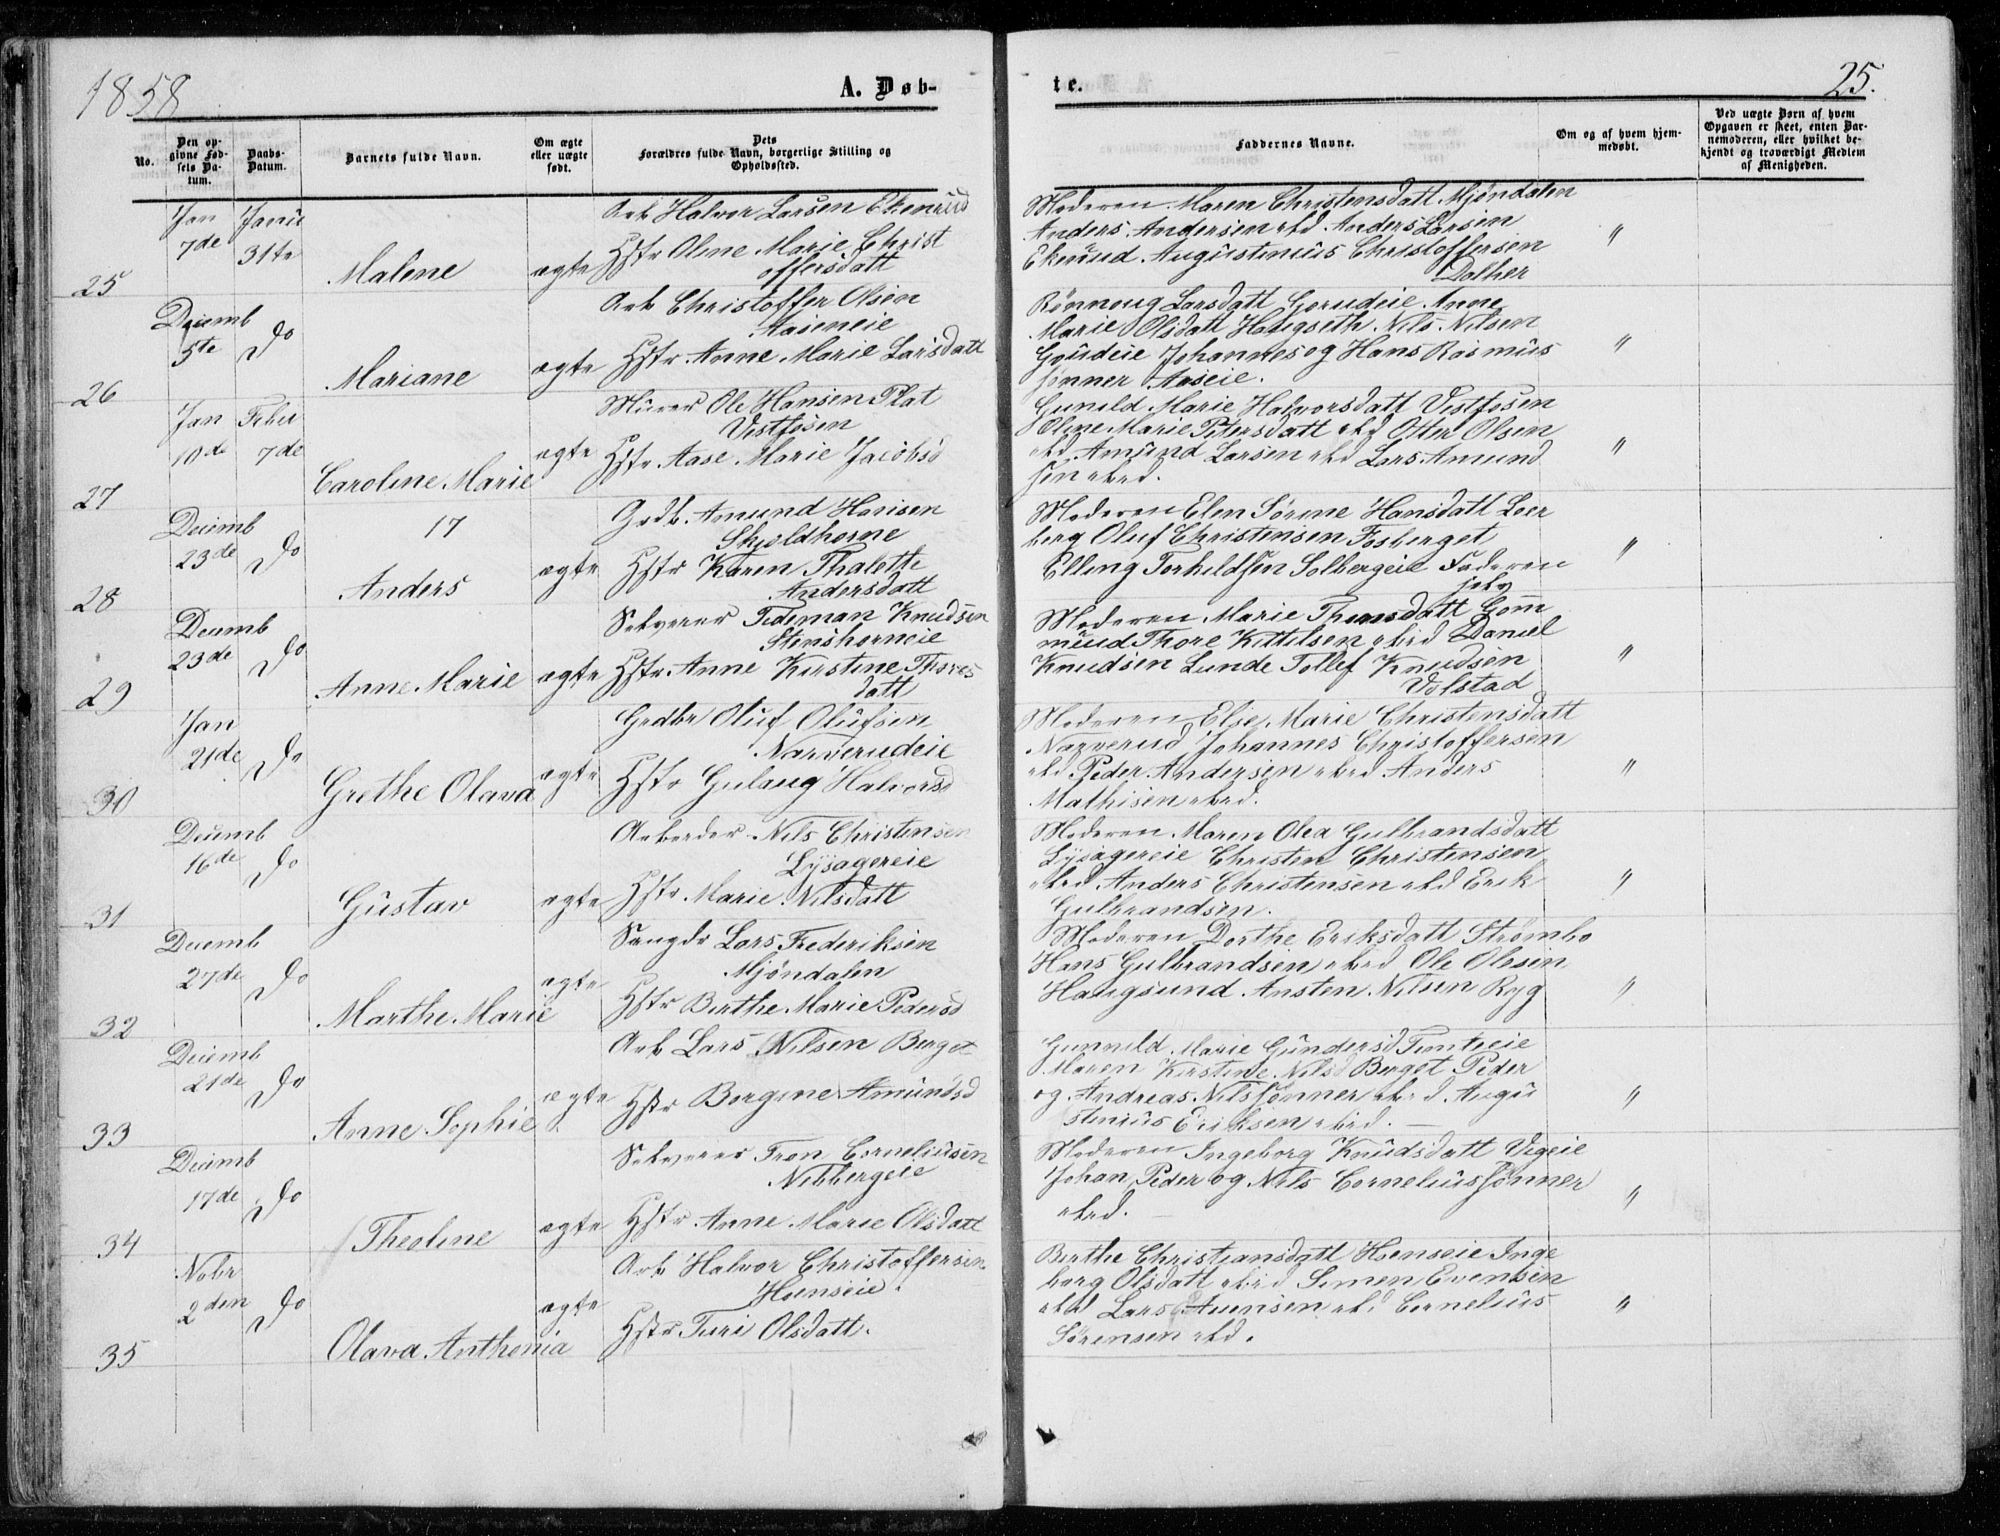 1858
A. Døb-
te.
25.
No.
Den op-
givne Fød-
sels Da-
tum.
Daabs-
Datum.
Barnets fulde Navn.
Om ægte
eller uægte
født.
Dets
Forældres fulde Navn, borgerlige Stilling og
Opholdssted.
Faddernes Navne.
Om og af hvem hjem-
medøbt.
Ved uægte Børn af hvem
Opgaven er skeet, enten Bar-
nemoderen, eller hvilket be-
kjendt og troværdigt Medlem
af Menigheden.
25
Jan
7de
Janu
31te
Malene
ægte
Arb Halvor Larsen Ekenrud
Hstr Oline Marie Christ
offersdatt
Moderen Maren Christensdatt Mjøndalen
Anders Andersen Anders Larsen
Ekerud Augustinius Christoffersen
"
26
Decemb
5te
Do
Mariane
ægte
Arb Christoffer Olsen
Aaseneie
Hstr Anne Marie Larsdatt
Rønnoug Larsdatt Gorudeie Anne
Marie Olsdatt Hougseth Nils Nilsen
Johannes og Hans Rasmus
sønner Aaseie.
"
27
Jan
10de
Feber
7de
Caroline Marie
ægte
Murer Ole Hansen Plat
Vestfosen
Hstr Aase Marie Jacobsd
Gunild Marie Halvorsdatt Vestfosen
Oline Marie Petersdatt abd Otter Olsen
abd Amund Larsen abd Lars Amund
sen abed.
"
28
Decemb
23de
Do
17
Anders
ægte
Grdb. Amund Hansen
Skjoldhorne
Hstr Karen Thalette
Andersdatt
Moderen Elen Sørine Hansdatt Loer
berg Oluf Christensen Fosberget
Elling Torkildsen Solbergeie Faderen
selv
"
29
Decemb
23de
Do
Anne Marie
ægte
Selveier Tideman Knudsen
Stenshorneie
Hstr Anne Kirstine Thores
datt
Moderen Marie Thoresdatt Gom
merud Thore Kittilsen abed Daniel
Knudsen Lunde Tollef Knudsen
Volstad
"
30
Jan
21de
Do
Grethe Olava
ægte
Grdbr Oluf Olufsen
Narverudeie
Hstr Gulaug Halvorsd
Moderen Else Marie Christensdatt
Narverud Johannes Christoffersen
abd Peder Andersen abed Anders
Mathisen abed.
"
31
Decemb
16de
Do
Gustav
ægte
Arbeider Nils Christensen
Lysagereie
Hstr Marie Nilsdatt
Moderen Maren Olea Gulbrandsdatt
Lysagereie Christen Christensen
abed Anders Christensen abd Erik
Gulbrandsen.
"
32
Decemb
27de
Do
Marthe Marie
ægte
Saugdr Lars Frederiksen
Mjöndalen
Hstr Berthe Marie Pedersd
Moderen Dorthe Eriksdatt Strømbo
Hans Gulbrandsen abed Ole Olesen
Haugsund Ansten Nilsen Ryg
"
33
Decemb
21de
Do
Anne Sophie
ægte
Arb Lars Nilsen Berget
Hstr Borgine Amundsd
Gunnild Marie Gundersd Temteeie
Maren Kirstine Nilsd Berget Peder
og Andreas Nilssønner abed. Augu
stinius Eriksen abed.
"
34
Decemb
17de
Do
Theoline
ægte
Selveier Tron Corneliusen
Nebbergeie
Hstr Anne Marie Olsdatt
Moderen Ingeborg Knudsdatt Vegeie
Johan Peder og Nils Corneliussønner
abed.
"
35
Nobr
2den
Do
Olava Anthonia
ægte
Arb Halvor Christoffersen
Hoenseie.
Hstr Turi Olsdatt.
Berthe Christiansdatt Hoenseie Inge
borg Olsdatt abed Simen Evensen
abd Lars Auensen abd Cornelius
Sørensen abd.
"